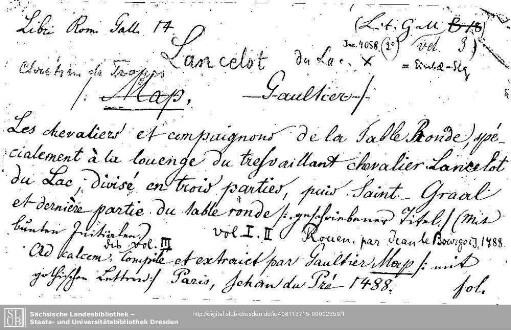 Libri Rom. Gall. 14
(Lit. Gall. B. 18)
Lancelot du Lac. X
Inc. 4058 (2°) vol. 3)
Chrestien de Troyes
= Einbd-Slg
/: Map, Gaultier :/
Les chevaliers et compaignons de la Table Ronde, spé-
cialement à la louenge du tresvaillant chevalier Lancelot
du Lac, divisé en trois parties, puis Saint Graal
et dernière partie du table ronde /: geschriebener Titel, / (Mit
bunten Initialen) vol. I. II Rouen, par Jean le Bourgois, 1488.
did. vol. III
Ad calcem: Compilé et extraict par Gaultier Map /: mit
gothischen Lettern :/ Paris, Jehan du Pré 1488. fol.
Sächsische Landesbibliothek –
Staats- und Universitätsbibliothek Dresden